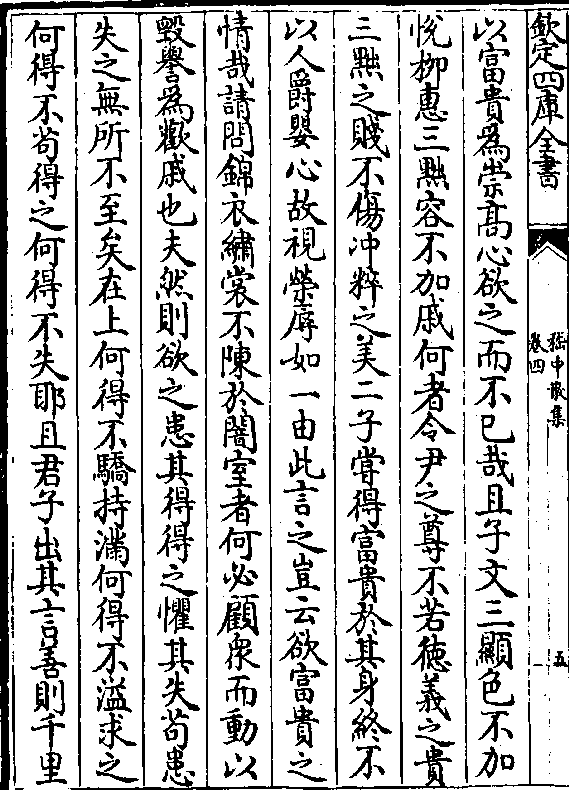 欽定四庫全書
嵇中散集
卷四
五
以富貴為崇高心欲之而不已哉且子文三顯色不加
悅柳惠三黜容不加戚何者令尹之尊不若徳義之貴
三黜之賤不傷冲粹之美二子嘗得富貴於其身終不
以人爵嬰心故視榮辱如一由此言之豈云欲富貴之
情哉請問錦衣繡裳不陳於闇室者何必顧衆而動以
毀譽為歡戚也夫然則欲之患其得得之懼其失苟患
失之無所不至矣在上何得不驕持滿何得不溢求之
何得不苟得之何得不失耶且君子出其言善則千里